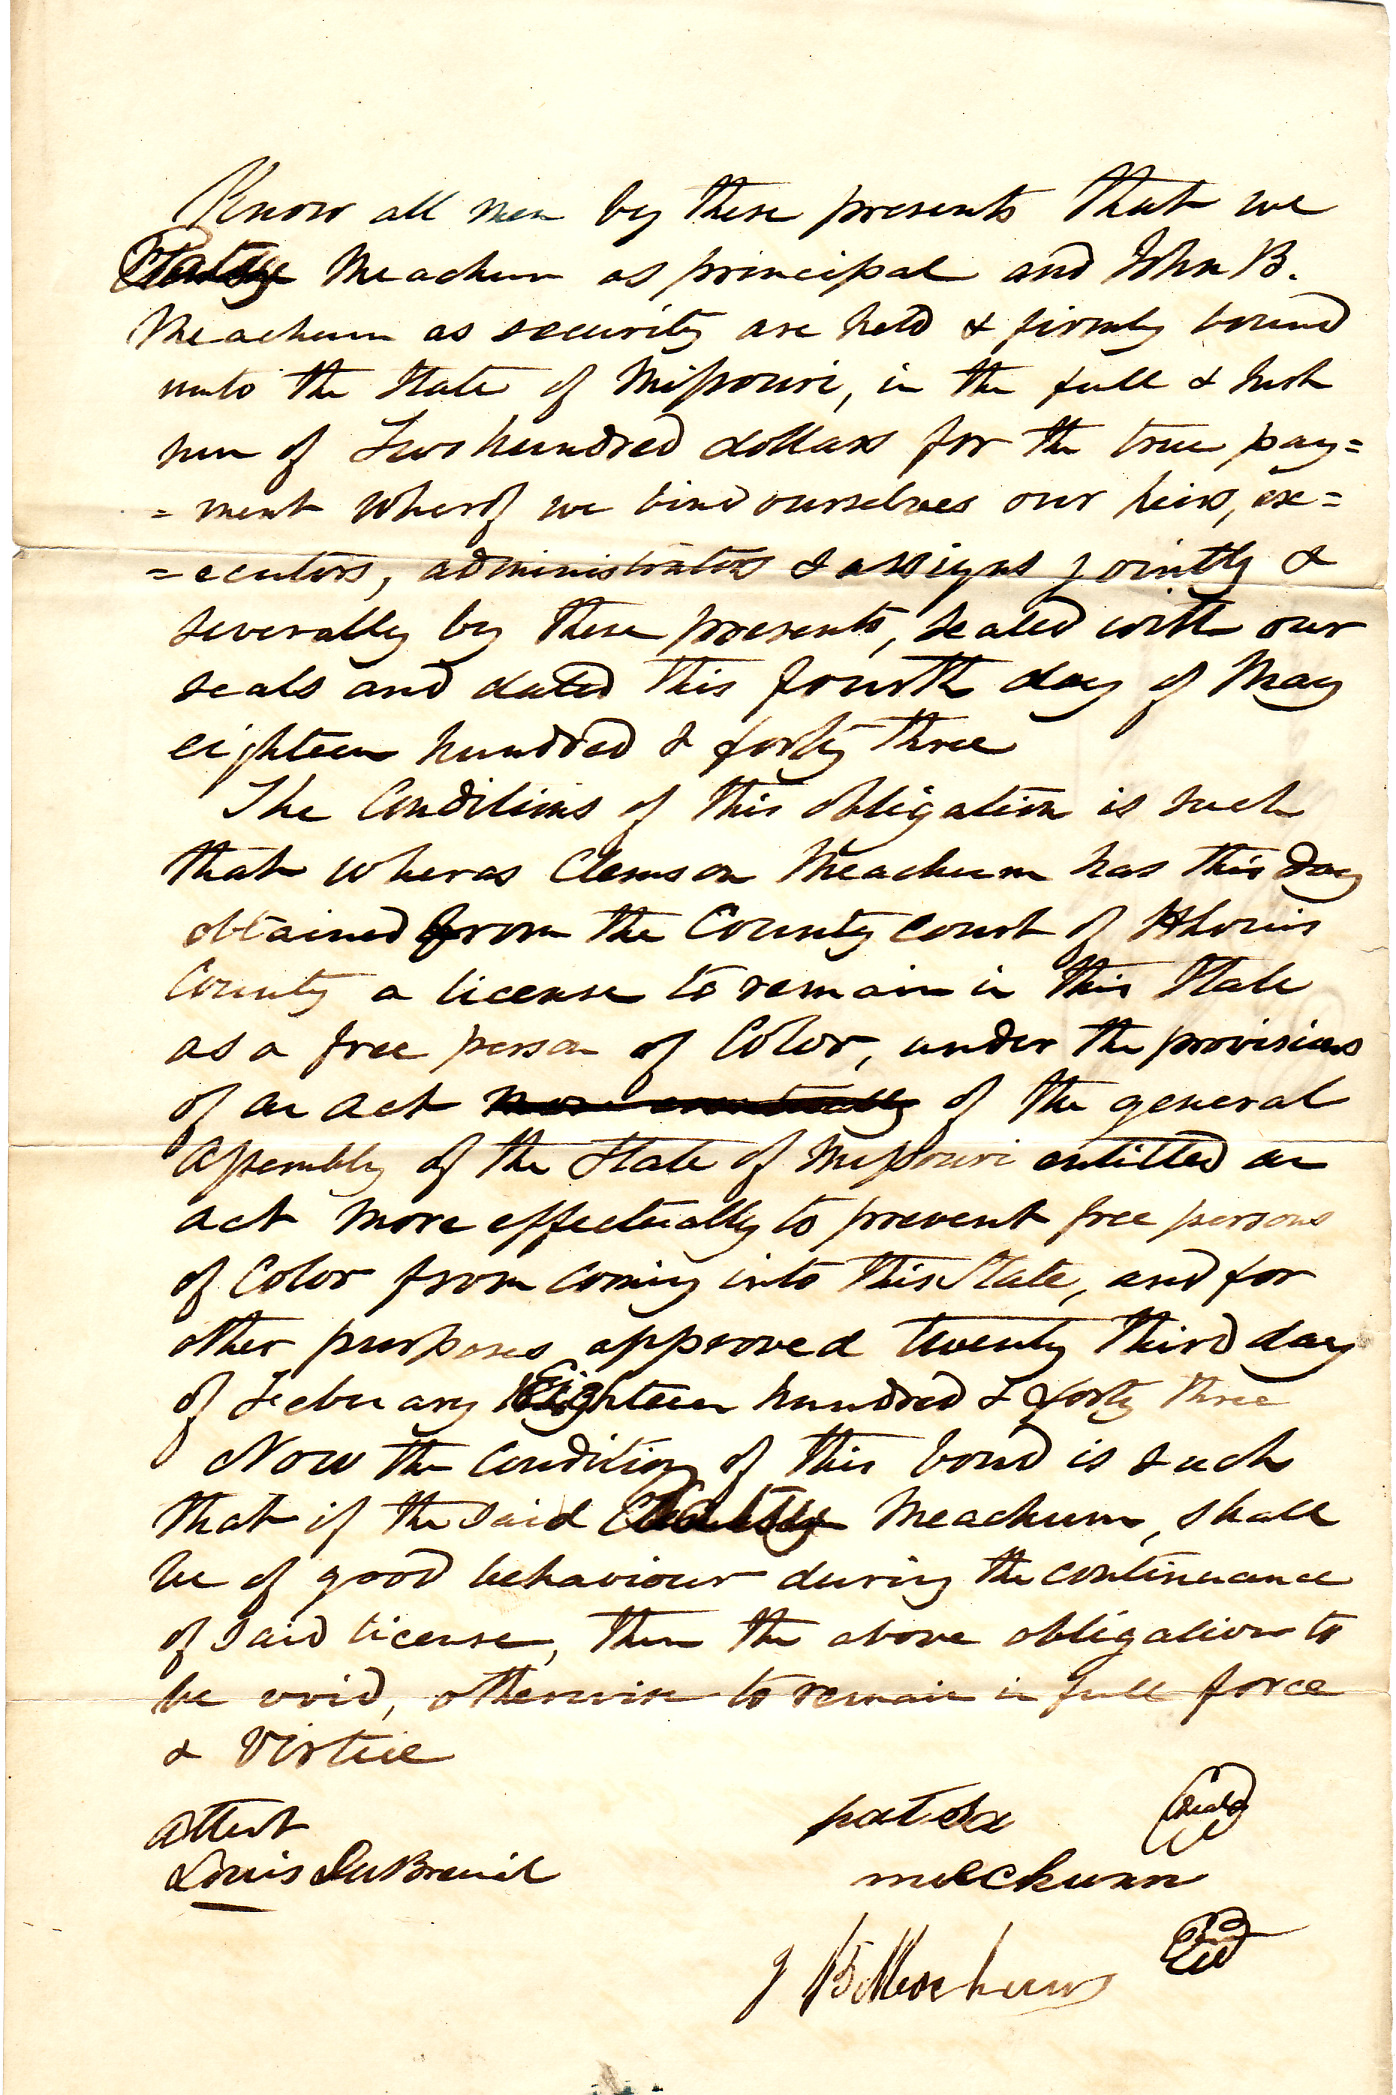 Know all men by these presents that we
Meachum as principal and John B.
Meachum as security are held & firmly bound
unto the State of Missouri, in the full & Just
sum of Two hundred dollars for the true pay=
=ment wherof we bind ourselves our heirs, ex=
=ecutors, administrators & assigns jointly &
severally by these presents, sealed with our
seals and dated this fourth day of May
eighteen hundred & forty three
The Conditions of this obligation is such
that wheras Clemson Meachum has this day
obtained from the County Court of St Louis
County a license to remain in this State
as a free person of Color, under the provisions
of an act more eventually of the general
Assembly of the State of Missouri entitled an
act more effectually to prevent free persons
of Color from coming into this State, and for
other purposes approved twenty third day
of February Eighteen hundred & forty three
Now the Condition of this bond is such
that if the said Meachum, shall
be of good behaviour during the continuance
of said license, then the above obligation to
be void, otherwise to remain in full force
& Virtue
Attest
Louis DuBreuil
meckunn
J B Meachum